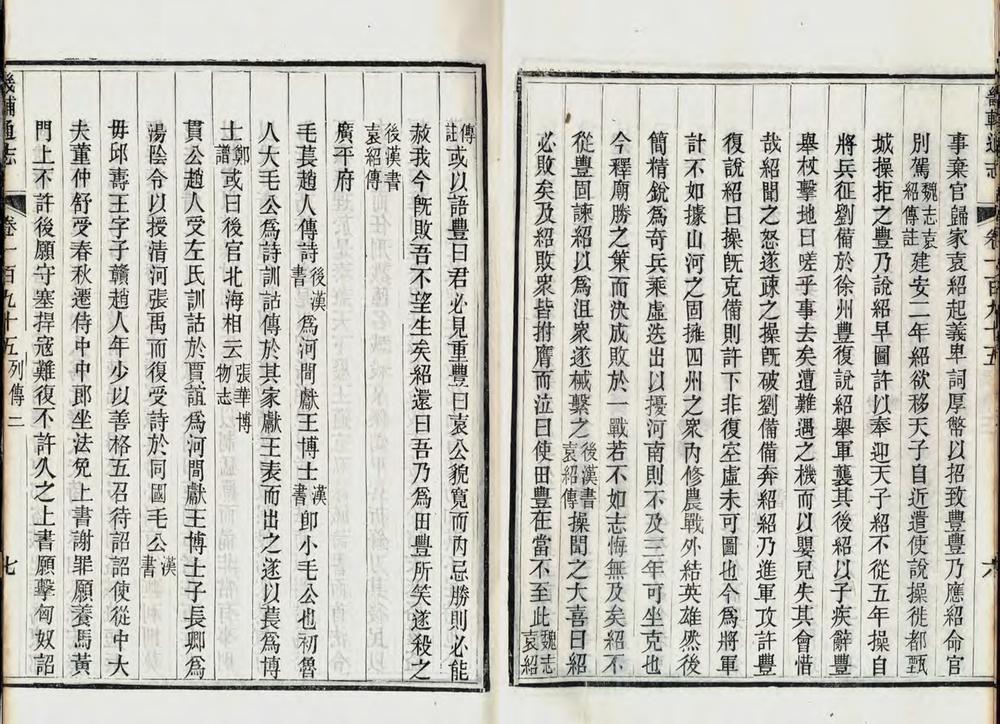 畿輔通志 卷一百九十五
六
事棄官歸家袁紹起義卑詞厚幣以招致豐豐乃應紹命官
別駕魏志袁紹傳註建安二年紹欲移天子自近遣使說操徙都甄
城操拒之豐乃說紹早圖許以奉迎天子紹不從五年操自
將兵征劉備於徐州豐復說紹舉軍襲其後紹以子疾辭豐
舉杖擊地曰嗟乎事去矣遭難遇之機而以嬰兒失其會惜
哉紹聞之怒遂疎之操旣破劉備備奔紹紹乃進軍攻許豐
復說紹曰操旣克備則許下非復空虛未可圖也今爲將軍
計不如據山河之固擁四州之衆內修農戰外結英雄然後
簡精銳爲奇兵乘虛迭出以擾河南則不及三年可坐克也
今釋廟勝之策而決成敗於一戰若不如志悔無及矣紹不
從豐固諫紹以爲沮衆遂械繫之後漢書袁紹傳操聞之大喜曰紹
必敗矣及紹敗衆皆拊膺而泣曰使田豐在當不至此魏志袁紹
傳註或以語豐曰君必見重豐曰袁公貌寬而內忌勝則必能
赦我今旣敗吾不望生矣紹還曰吾乃爲田豐所笑遂殺之
後漢書袁紹傳
廣平府
毛萇趙人傳詩後漢書爲河間獻王博士漢書卽小毛公也初魯
人大毛公爲詩訓詁傳於其家獻王表而出之遂以萇爲博
士鄭譜或曰後官北海相云張華博物志
貫公趙人受左氏訓詁於賈誼爲河間獻王博士子長卿爲
湯陰令以授清河張禹而復受詩於同國毛公漢書
毋邱壽王字子贛趙人年少以善格五召待詔詔使從中大
夫董仲舒受春秋遷侍中中郎坐法免上書謝罪願養馬黃
門上不許後願守塞捍寇難復不許久之上書願擊匈奴詔
畿輔通志 卷一百九十五 列傳二
七